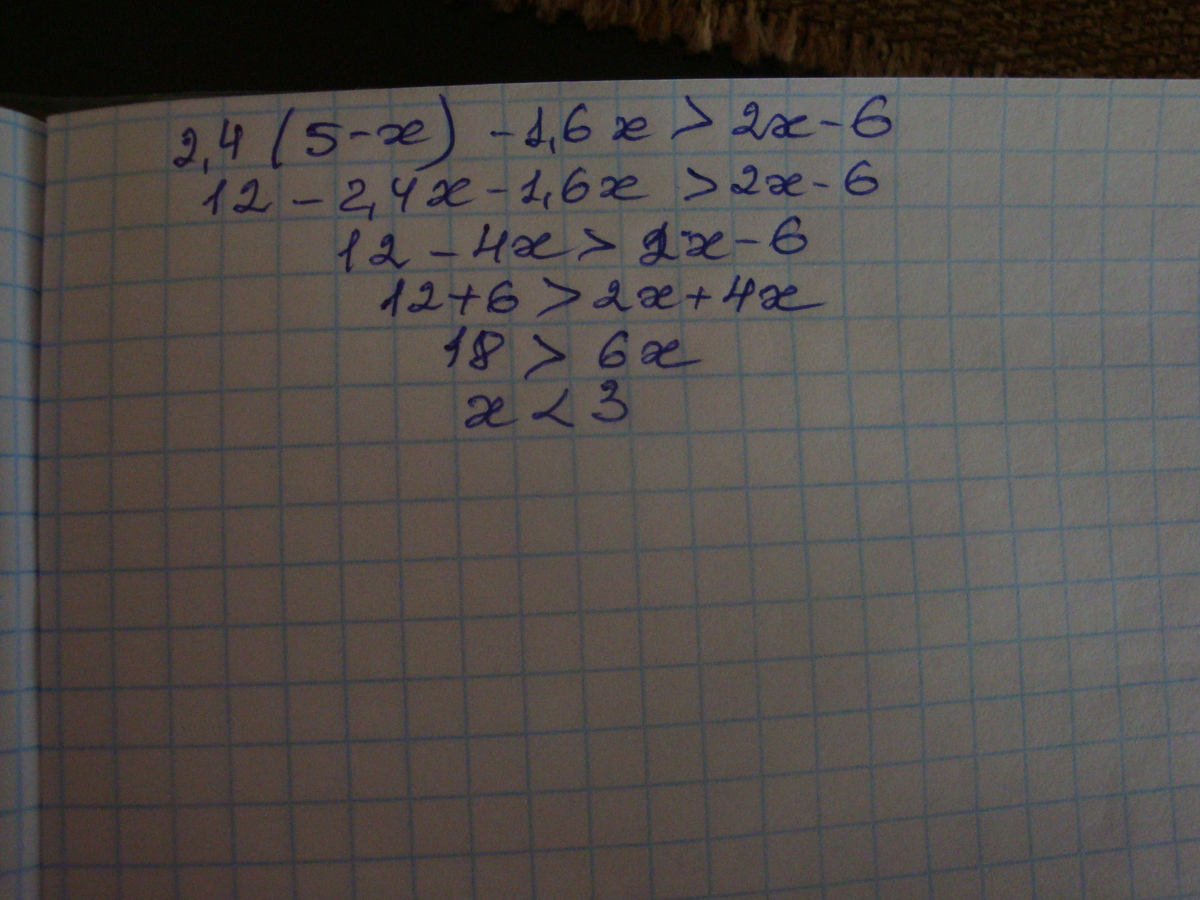 2,4 (5-x) -1,6x > 2x-6
12 - 2,4x - 1,6x > 2x - 6
12 - 4x > 2x - 6
12+6 > 2x+4x
18 > 6x
x < 3